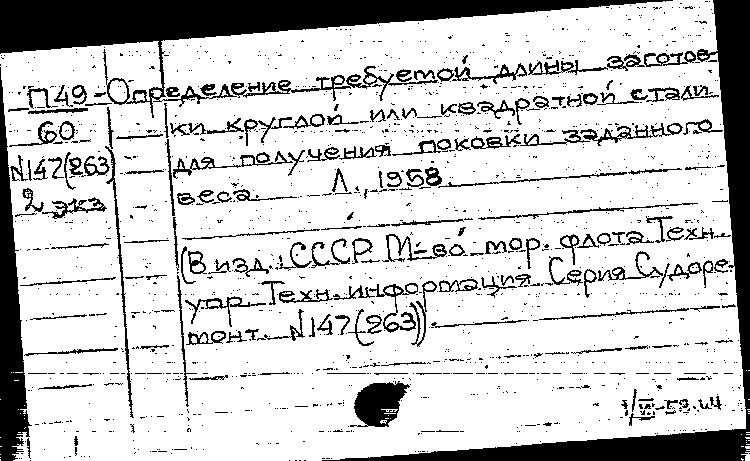 П49 - Определение требуемой длины заготов-
60 ки круглой или квадратной стали
N147(263) для получения поковки заданного
2 экз веса. Л., 1958.
(В изд.: СССР. М-во мор. флота. Техн.
упр. Техн. информация. Серия Судоре-
монт. N147(263)).